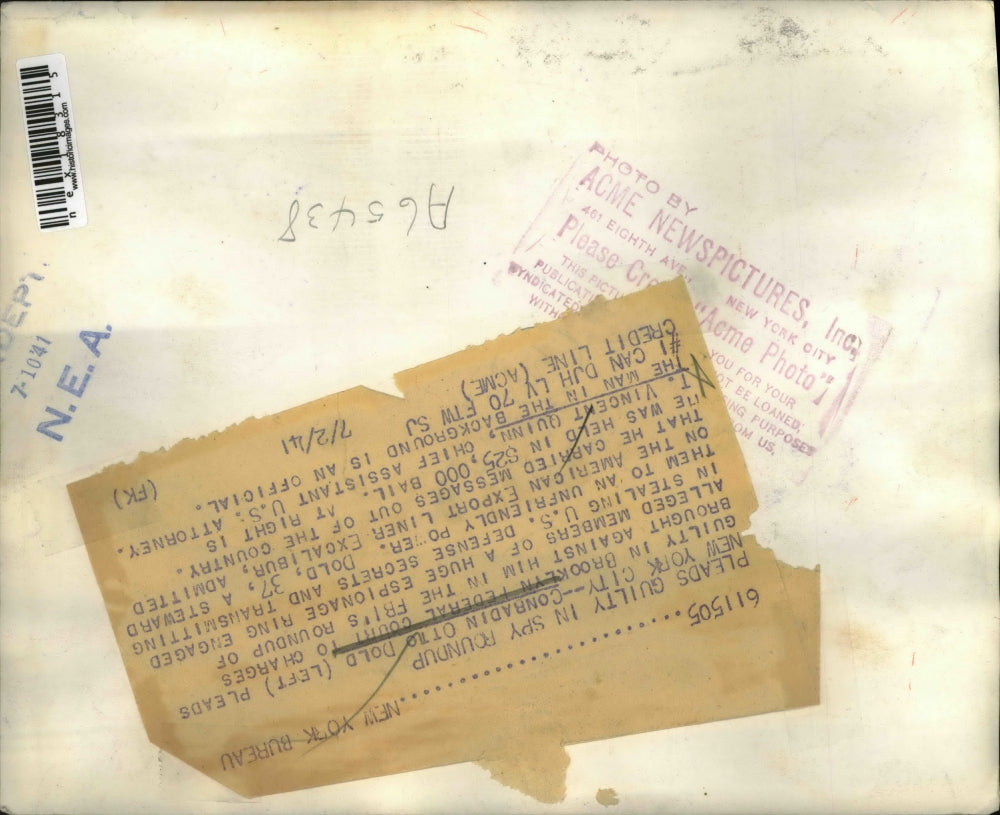 nex1 8315
www.historicimages.com
DEPT.
7-10 41
N.E.A.
A65438
PHOTO BY
ACME NEWSPICTURES, Inc.
461 EIGHTH AVE., NEW YORK CITY
Please Cre "Acme Photo"
THIS PICTU YOU FOR YOUR
PUBLICATI OT BE LOANED,
SYNDICATED NG PURPOSES
WITH OM US.
611505.........................NEW YORK BUREAU
PLEADS GUILTY IN SPY ROUNDUP
NEW YORK CITY--CONRADIN OTTO DOLD (LEFT) PLEADS
GUILTY IN BROOKLYN FEDERAL COURT TO CHARGES
BROUGHT AGAINST HIM IN THE FBI'S ROUNDUP OF
ALLEGED MEMBERS OF A HUGE ESPIONAGE RING ENGAGED
IN STEALING U.S. DEFENSE SECRETS AND TRANSMITTING
THEM TO AN UNFRIENDLY POWER. DOLD, 37, A STEWARD
ON THE AMERICAN EXPORT LINER EXCALIBUR, ADMITTED
THAT HE CARRIED MESSAGES OUT OF THE COUNTRY.
HE WAS HELD IN $25,000 BAIL. AT RIGHT IS
T. VINCENT QUINN, CHIEF ASSISTANT U.S. ATTORNEY.
THE MAN IN THE BACKGROUND IS AN OFFICIAL.
#1 CAN DJH LV 70 FTW SJ
CREDIT LINE (ACME) 7/2/41 (FK)